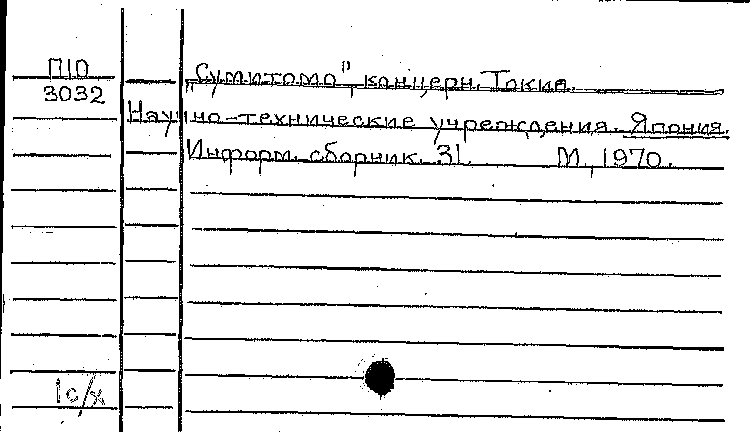 П10
3032
„Сумитомо", концерн. Токио.
Научно-технические учреждения. Япония.
Информ. сборник. 31. М., 1970.
1с/х